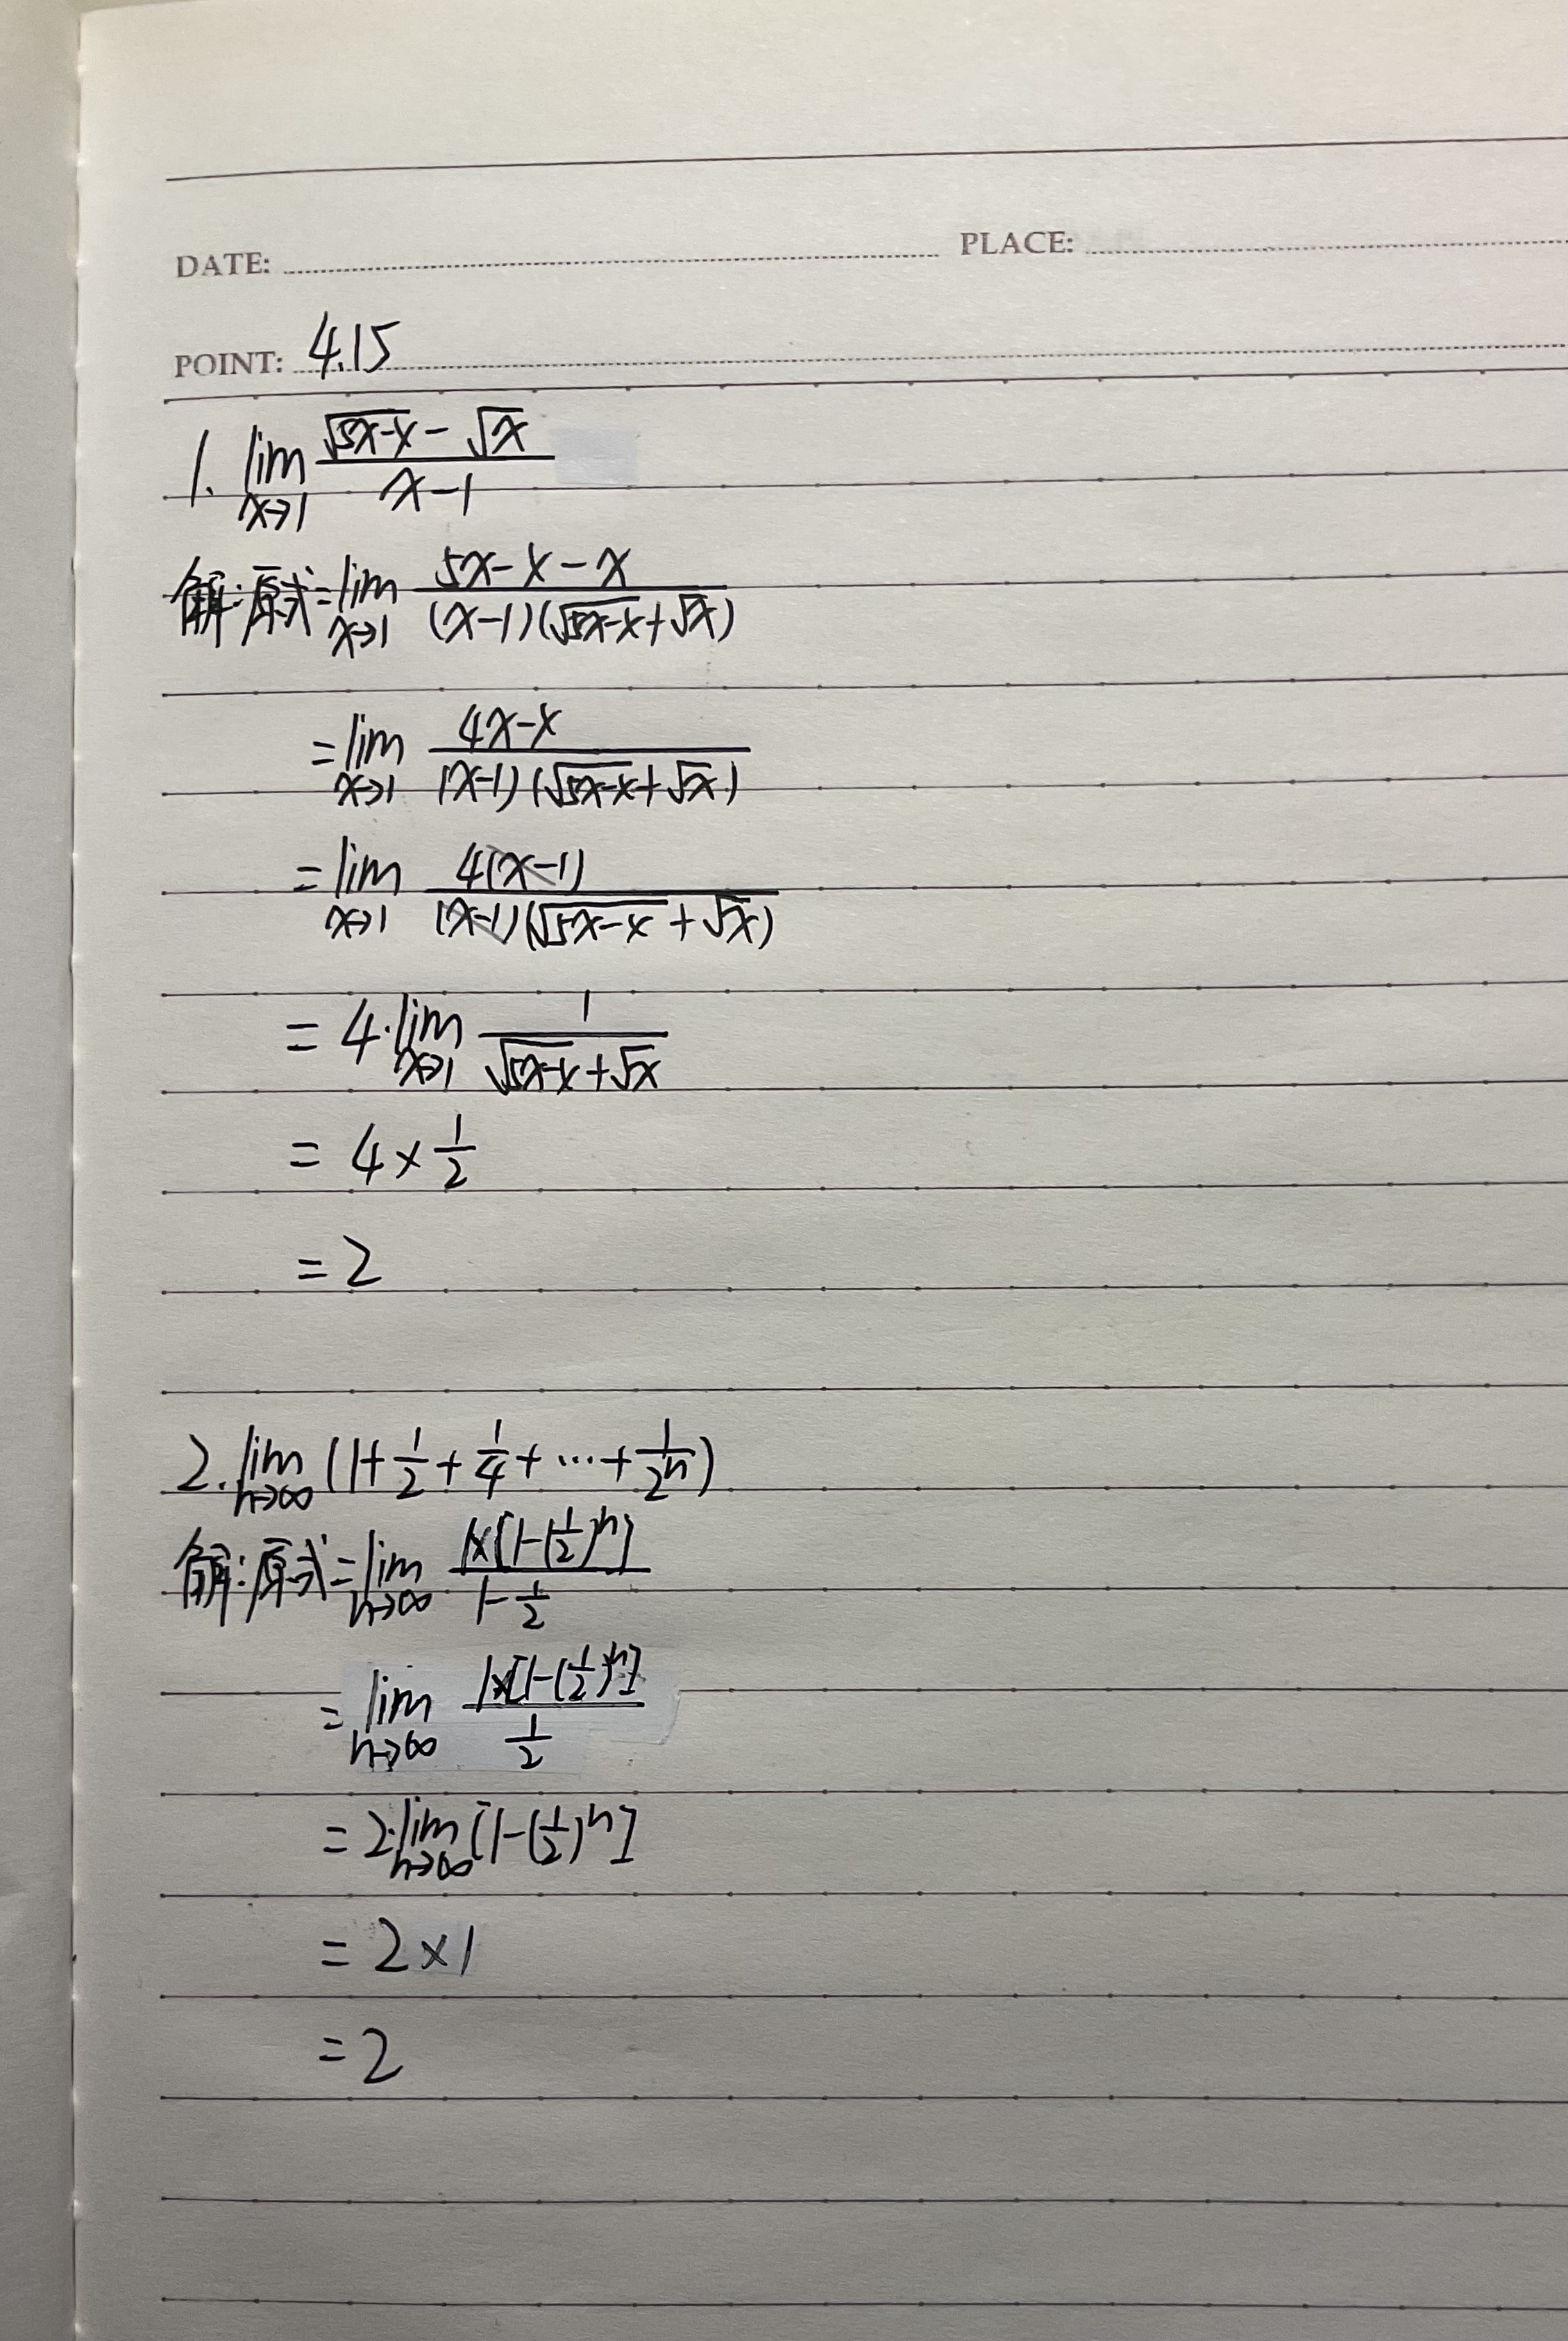 DATE: PLACE:
POINT: 4.15
1. lim_{x→1} (√(5x-x) - √x)/(x-1)
解:原式=lim_{x→1} (5x-x-x)/((x-1)(√(5x-x)+√x))
=lim_{x→1} (4x-x)/((x-1)(√(5x-x)+√x))
=lim_{x→1} 4(x-1)/((x-1)(√(5x-x)+√x))
=4·lim_{x→1} 1/(√(5x-x)+√x)
=4×1/2
=2
2. lim_{n→∞} (1+1/2+1/4+…+1/2^n)
解:原式=lim_{n→∞} (1×[1-(1/2)^n])/(1-1/2)
=lim_{n→∞} (1×[1-(1/2)^n])/(1/2)
=2·lim_{n→∞} [1-(1/2)^n]
=2×1
=2